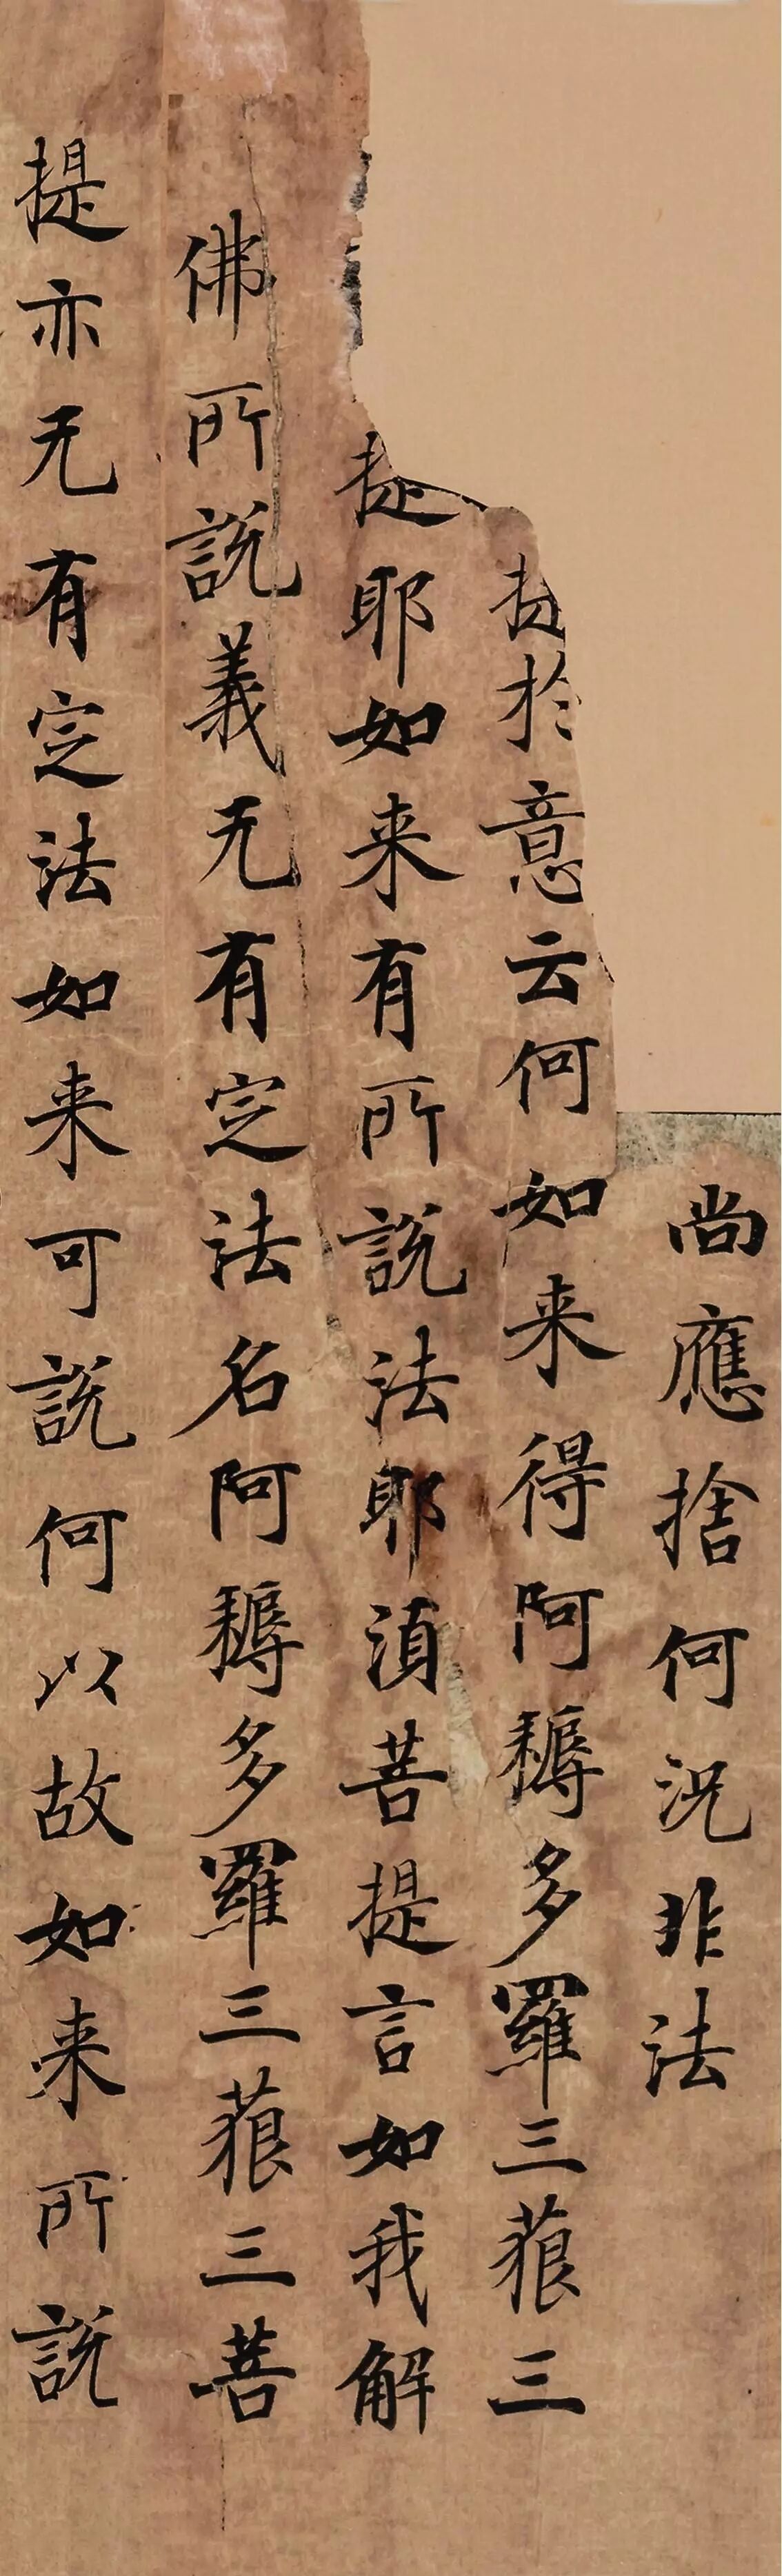 尚應捨何況非法
提於意云何如来得阿耨多羅三藐三
提耶如来有所說法耶湏菩提言如我解
佛所說義无有定法名阿耨多羅三藐三菩
提亦无有定法如来可說何以故如来所說